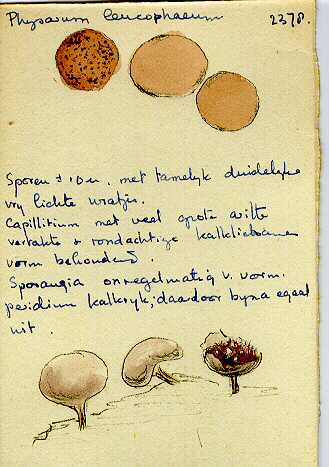 Physarum leucophaeum 2378.
Sporen ± 10 u. met tamelyk duidelyke
vry lichte wratjes.
Capillitium met veel grote witte
vertakte & rondachtige
vorm behoudend.
Sporangia onregelmatig v. vorm.
peridium kalkryk, daardoor byna egaal
wit.